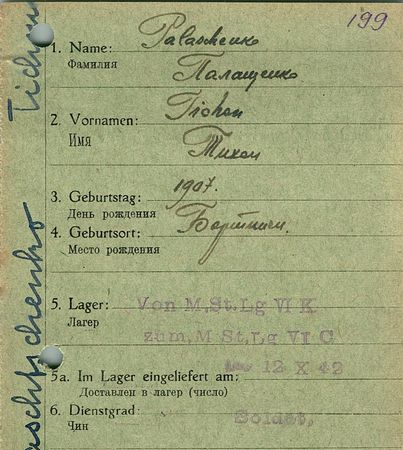 199
1. Name: Palaschenko
Фамилия Палащенко
2. Vornamen: Tichon
Имя Тихон
3. Geburtstag: 1907.
День рождения
4. Geburtsort:
Место рождения
5. Lager: Von M.St.Lg VI K
Лагер zum.M St.Lg VI C
12 X 42
5a. Im Lager eingeliefert am:
Доставлен в лагер (число)
6. Dienstgrad: Soldat,
Чин
aschtschenko Tichon